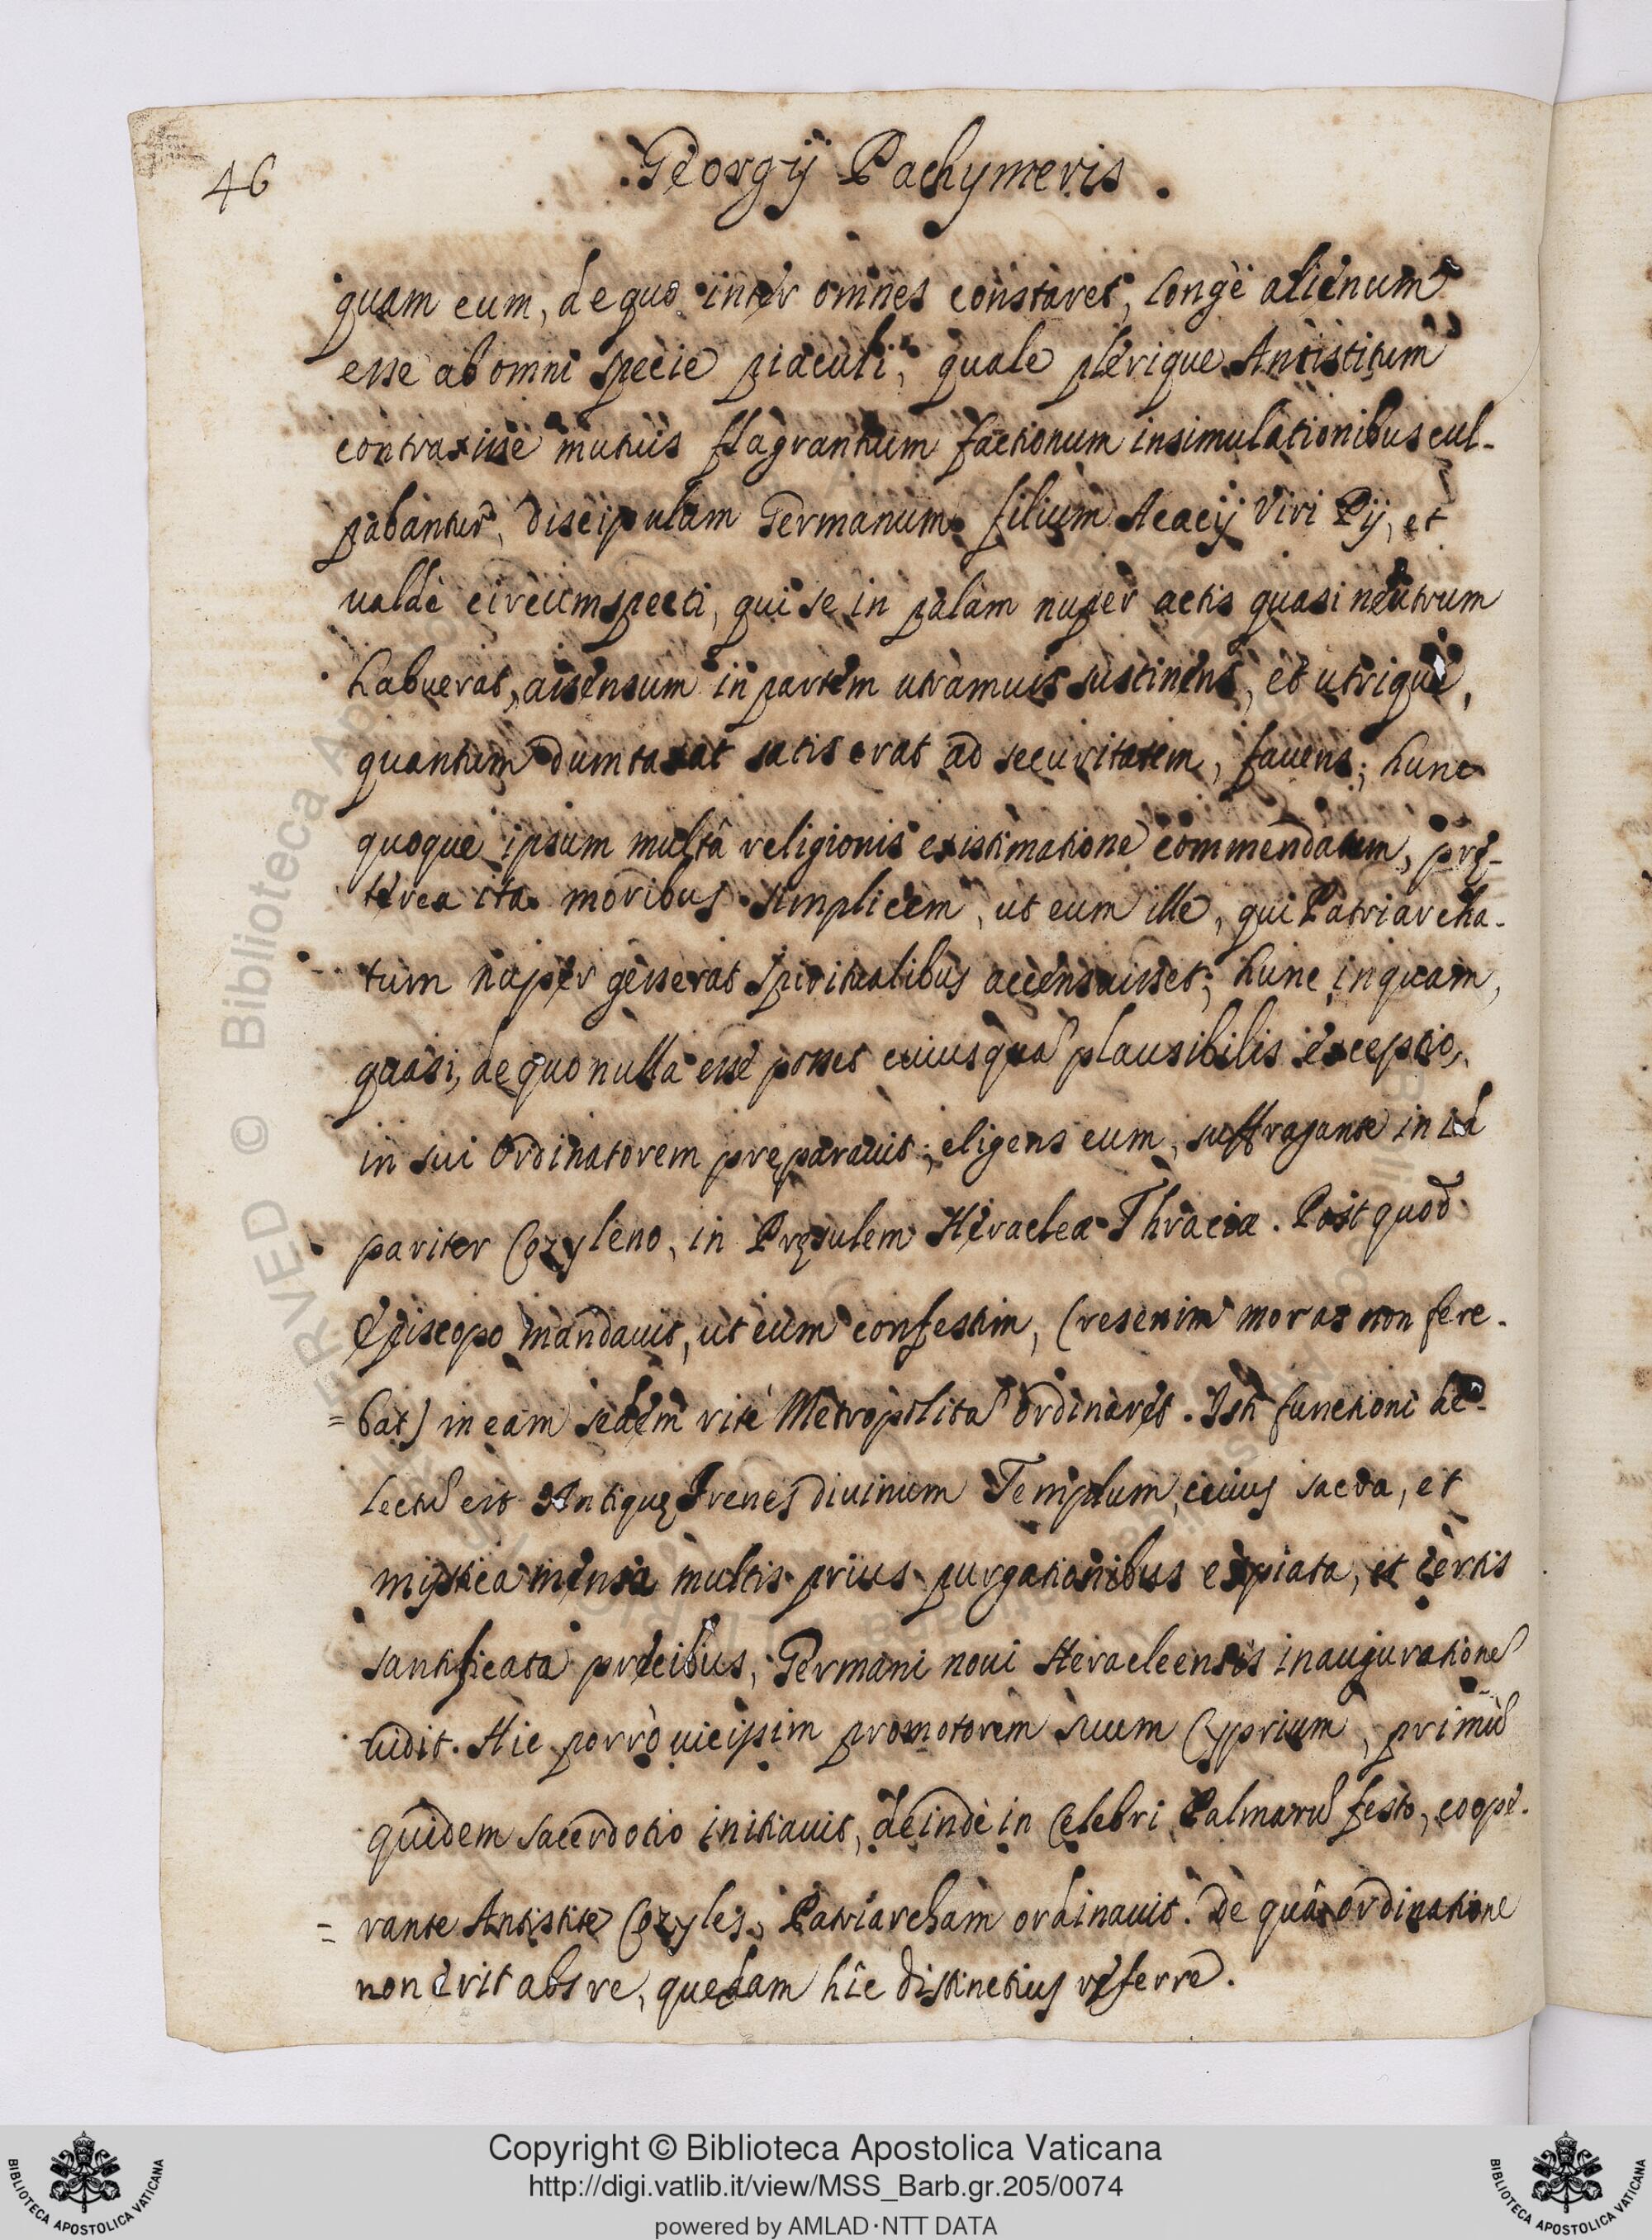 46
Georgij Pachymeris.
quam eum, de quo inter omnes constaret, longè alienum
esse ab omni specie piaculi, quale plerique Antistitum
contraxisse mutuis flagrantium factionum insimulationibus cul-
pabantur, discipulum Germanum filium Acacij Viri Pij, et
ualdè circumspecti, qui se in palam nuper actis quasi neutrum
habuerat, assensum in partem utramuis sustinens, et utrique,
quantum dumtaxat satis erat ad securitatem, fauens; hunc
quoque ipsum multâ religionis existimatione commendatum, prę-
terea ita moribus simplicem, ut eum ille, qui Patriarcha-
tum nuper gesserat spiritualibus accensuisset; hunc, inquam,
quasi, de quo nulla esse posset cuiusquã plausibilis exceptio,
in sui Ordinatorem pręparauit; eligens eum, suffragante in id
pariter Cozyleno, in Pręsulem Heracleæ Thraciæ. Post quod
Episcopo mandauit, ut eum confestim, (res enim moras non fere-
=bat) in eam sedem ritè Metropolitã ordinaret. Isti functioni de-
lectũ est Antiquę Irenes diuinum Templum, cuius sacra, et
mystica mensa multis prius purgationibus expiata, et certis
santificata precibus, Germani noui Heracleensis inaugurationẽ
uidit. Hic porrò uicissim promotorem suum Cyprium, primũ
quidem sacerdotio initiauit, deindè in celebri Palmarũ festo, coope-
=rante Antistite Cozyles, Patriarcham ordinauit. De quâ ordinatione
non erit abs re, quędam hîc distinctius referre.
Copyright © Biblioteca Apostolica Vaticana
http://digi.vatlib.it/view/MSS_Barb.gr.205/0074
powered by AMLAD·NTT DATA
BIBLIOTECA APOSTOLICA VATICANA
BIBLIOTECA APOSTOLICA VATICANA